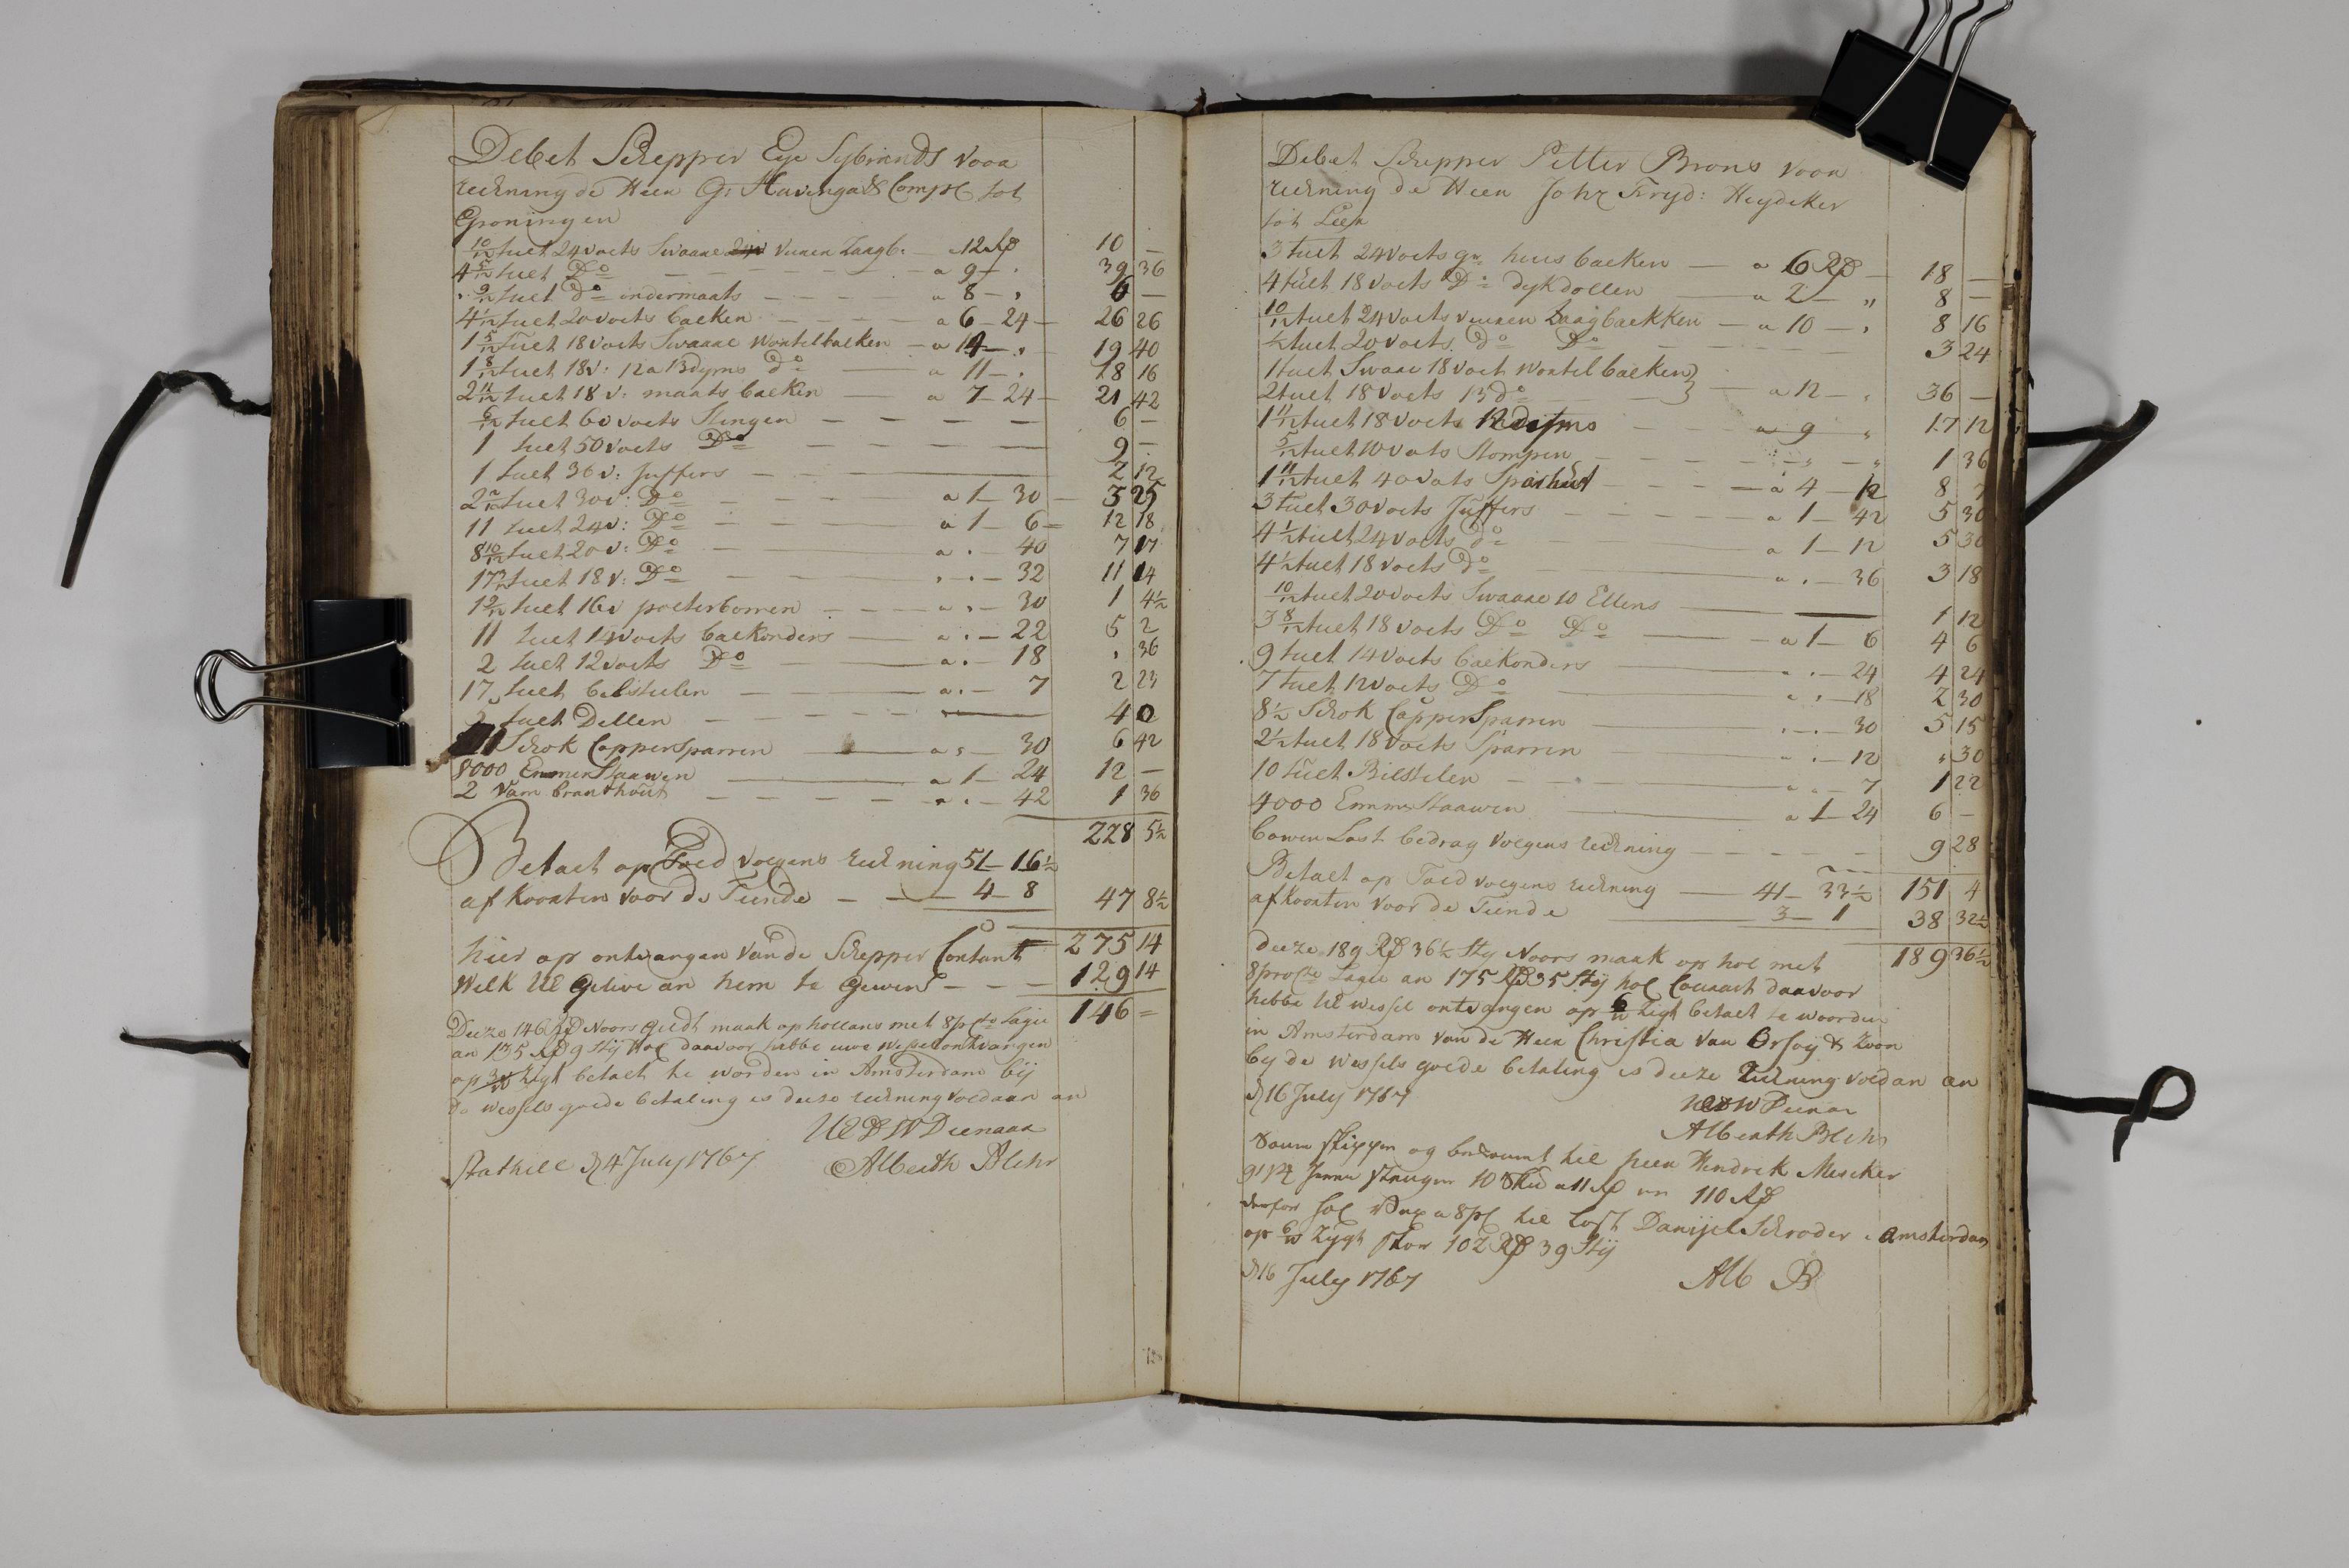 Debet Schepper Eye Sybrands voor
reekning de Heer G: Havinga & Comps tot
Groningen
10/12 tuelt 24 voets Swaare vueren Zaagb: — 12 Rd 10 —
4 5/12 tuelt Do — a 9 — 39 36
9/12 tuelt do indermaats — a 8 — 6 —
4 1/12 tuelt 20 voets balken — a 6 — 24 — 26 26
1 5/12 tuelt 18 voets Swaare Wontelbalken — a 14 — 19 40
1 8/12 tuelt 18 v: 12 a 13 dyms do — a 11 — 18 16
2 11/12 tuelt 18 v: maats balken — a 7 — 24 — 21 42
6/12 tuelt 60 voets Slengen — 6 —
1 tuelt 50 voets Do — 9 —
1 tuelt 36 v: Juffers — 2 12
tuelt 30 v: Do — a 1 — 30 — 3 25
11 tuelt 24 v: Do — a 1 — 6 — 12 18
8 10/12 tuelt 20 v: Do — a . — 40 7 17
tuelt 18 v: Do — . . — 32 11 14
tuelt 16 v polterborren — a . — 30 1 4½
11 tuelt 14 voets balkonders — a . — 22 5 2
2 tuelt 12 voets Do — a . — 18 . 36
17 tuelt bilstulen — a . — 7 2 23
tuelt Dellen — 4 0
Schok Cappersparren — a . — 30 6 42
8000 Emmer Staawen — a 1 — 24 12 —
2 vam branthout — a . — 42 1 36
228 5½
Betaelt op Toed volgens reekning 51 — 16½
afkoorten voor de Tiende — 4 — 8 47 8½
275 14
hier op ontvangen van de Schepper Contant
Welk UE gelive an hem te gewen — 129 14
146 =
Deeze 146 Rd Noors geldt maak op hollans met 8 prcto Lagie
an 135 Rd 9 Sty Hol daavoor hebbe uwe wessel ontvangen
op zigt betaelt te worden in Amsterdam bij
de wessels goede betaling is deeze reekning voldaan an
UEDW Dienaar
Stathell d 4 July 1767 Alberth Blehr
Debet Schepper Petter Brons voor
reekning de Heer Johz Fryd: Heydeker
tot Leer
3 tuelt 24 voets gr: huus balken — a 6 Rd — 18 —
4 tuelt 18 voets Do dykdollen — a 2 — 8 —
10/12 tuelt 24 voets vueren Zaagbalkken — a 10 — 8 16
tuelt 20 voets do Do — 3 24
1 tuelt Swaar 18 voet Wontel balken }
2 tuelt 18 voets 13 do — } — a 12 — 36 —
1 11/12 tuelt 18 voets 12 dyms — a 9 17 12
5/12 tuelt 10 voets Stompen — 1 36
1 11/12 tuelt 40 voets Sparhout — a 4 — 12 8 7
3 tuelt 30 voets Juffers — a 1 — 42 5 30
4½ tuelt 24 voets do — a 1 — 12 5 30
4½ tuelt 18 voets do — a . — 36 3 18
10/12 tuelt 20 voets Swaare 10 Ellens — 1 12
3 8/12 tuelt 18 voets Do Do — a 1 — 6 4 6
9 tuelt 14 voets balkonders — . — 24 4 24
7 tuelt 12 voets Do — . — 18 2 30
8½ Schok Cappersparren — . — 30 5 15
2½ tuelt 18 voets Sparren — . — 12 . 30
10 tuelt Bilstulen — . — 7 1 22
4000 Emmer Staawen — a 1 — 24 6 —
bowen Last bedrag volgens reekning — 9 28
151 4
Betaelt op Toed volgens reekning — 41 — 33½
afkoorten voor de Tiende — 3 — 1 38 32½
189 36½
deeze 189 Rd 36½ Sty Noors maak op hol met
8 procto Lagie an 175 Rd 35 Stij hol Couraant daavoor
hebbe UE wessel ontvangen op zigt betaelt te woorden
in Amsterdam van de Heer Christia van Orsoy & Zoon
by de Wessels goede betaling is deeze reekning voldan an
d 16 July 1767 UEDW Dienar
Alberth Blehr
Samme skipper og bekommt hil heer Hendrik Mescher
10 a 11 Rd er 110 Rd
hol a 8 pc hil Danijel Schroder i Amsterdam
op zygt stor 102 Rd 39 Stij
d 16 July 1767 Alb B